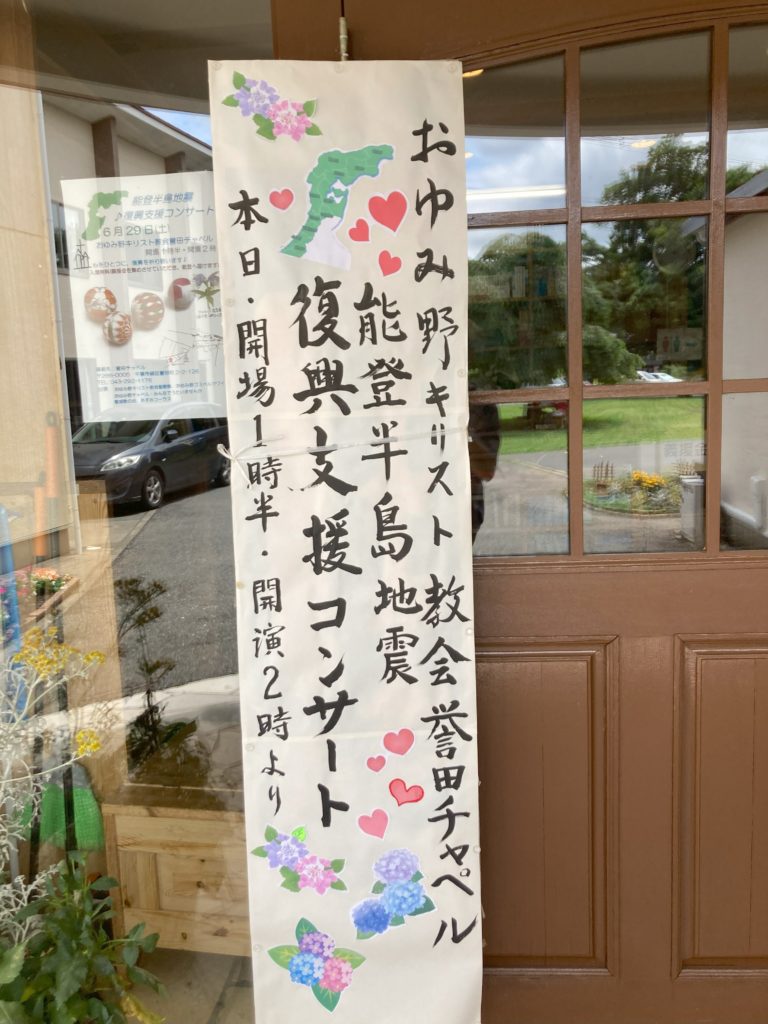 おゆみ野キリスト教会誉田チャペル
能登半島地震
復興支援コンサート
本日・開場1時半・開演2時より
能登半島地震
復興支援コンサート
6月29日(土)
おゆみ野キリスト教会誉田チャペル